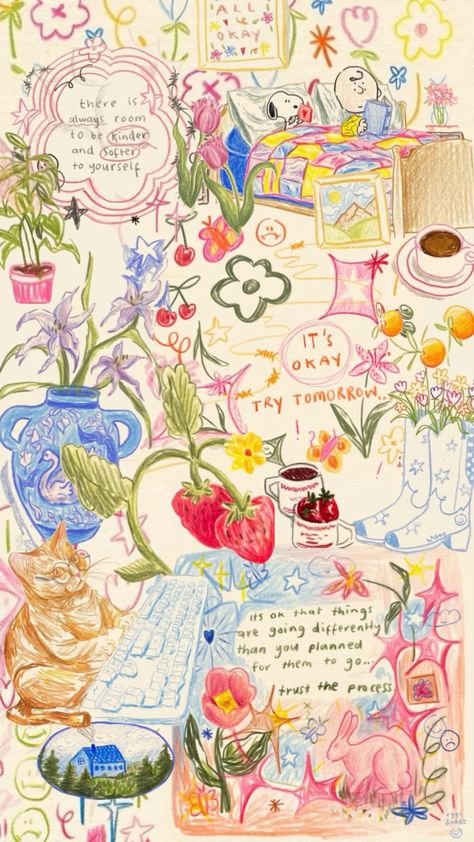 ALL
OKAY
there is
always room
to be kinder
and softer
to yourself
IT'S
OKAY
TRY TOMORROW..
its ok that things
are going differently
than you planned
for them to go...
trust the process